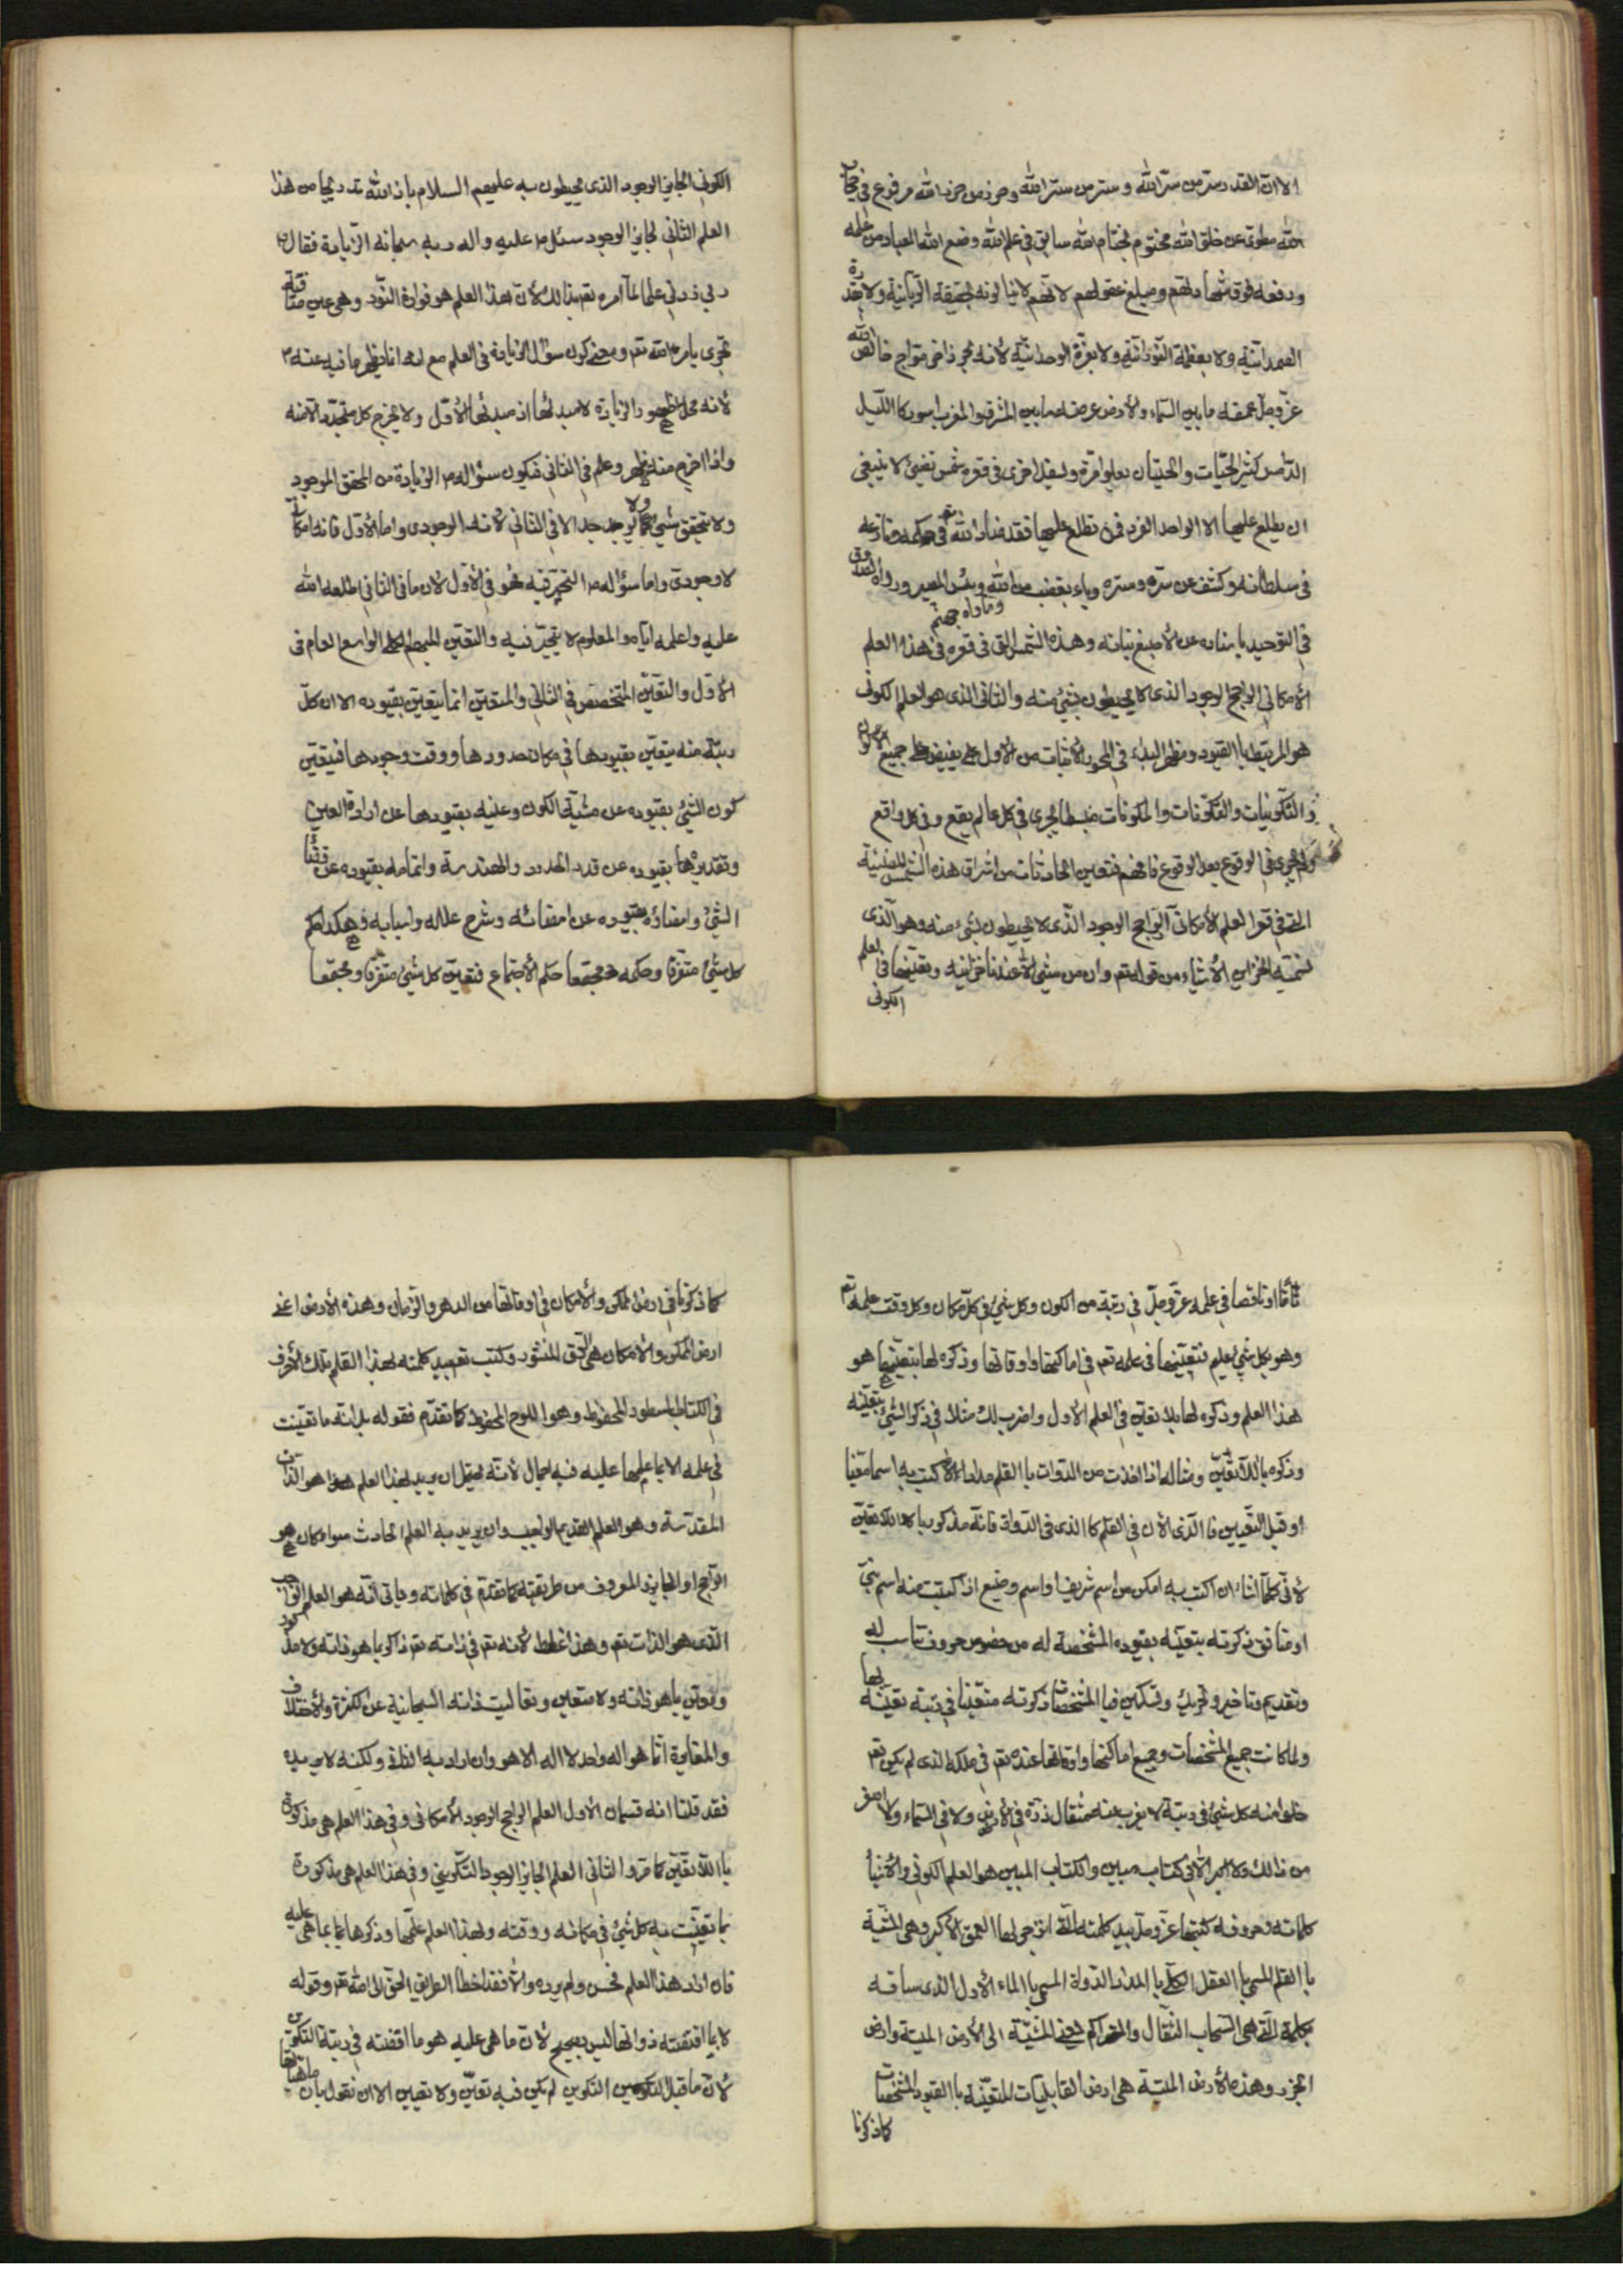 الا ان القدر سر من سر الله وستر من ستر الله وحرز من حرز الله مرفوع في حجاب
الله مطوى عن خلق الله مختوم بخاتم الله سابق في علم الله وضع الله العباد من علمه
ورفعه فوق شهاداتهم ومبلغ عقولهم لانهم لا ينالونه بحقيقة الربانية ولا بقدرة
الصمدانية ولا بعظمة النورانية ولا بعزة الوحدانية لانه بحر زاخر مواج خالص لله
عز وجل عمقه ما بين السماء والارض عرضه ما بين المشرق والمغرب اسود كاالليل
الدامس كثير الحيات والحيتان يعلو مرة ويسفل اخرى في قعره شمس تضيئ لا ينبغي
ان يطلع عليها الا الواحد الفرد فمن تطلع عليها فقد ضاد الله في حكمه ونازعه
في سلطانه وكشف عن سره وستره وباء بغضب من الله وماواه جهنم وبئس المصير ورواه الصدوق
في التوحيد باسناده عن الاصبغ بن نباته وهذه الشمس التي في قعره في هذا العلم
الامكاني الراجح الوجود الذي لا يحيطون بشئ منه والثاني الذي هو العلم الكوني
هو المرتبط باالقيود ومظهر البداء في المحو والاثبات من الاول يفيض على جميع الاكوان
والتكوينات والتكونات والمكونات فيسطا يجرى في كل عالم يقع وفي كل واقع
ويجرى في الوقوع بعد الوقوع فافهم فتعين الحادثات من اشراق هذه الشمس المضيئة
التي في قعر العلم الامكاني الراجح الوجود الذي لا يحيطون بشئ منه وهو الذي
نسميه الخزاين الاشياء من قوله تعم وان من شئ الا عندنا خزاينه وبتعينها في العلم
الكوني
الكوني الجايز الوجود الذي يحيطون به عليهم السلام باذن الله تدريجا من هذا
العلم الثاني لجايز الوجود سئل م عليه واله ربه سبحانه الزيادة فقال
رب زدني علما لما امره تعم بذالك لان هذا العلم هو فوارة النور وهي عين
تجرى بامر الله تعم ومعنى كون سؤال الزيادة في العلم مع انه انما يظهر ما فيه عنه م
لانه محل الظهور والزيادة لا مبدئها اذ مبدئها الاول ولا يخرج كل متجدد الا منه
واذا اخرج منه ظهر وعلم في الثاني فيكون سؤاله م الزيادة من المحقق الموجود
ولا يتحقق شئ ولا يوجد الا في الثاني لانه الوجودي واما الاول فانه امكاني
لا وجودي واما سؤاله م التحير فيه فهو في الاول لان ما في الثاني اطلعه الله
عليه واعلمه اياه والمعلوم لا يتحير فيه والتعين المبهم الكلي الواسع العام في
الاول والتعين المتخصص في الثاني والمتعين انما يتعين بقيوده الا ان كل
رتبة منه يتعين بقيودها في مكان صدورها ووقت وجودها فيتعين
كون الشئ بقيوده عن مشية الكون وعينه بقيودها عن ارادة العين
وتقديرها بقيوده عن قدر الحدود والهندسة واتمامه بقيوده عن قضاء
الشئ وامضاؤه بقيوده عن امضائه وشرح علله واسبابه وهكذا حكم
كل شئ متفرقا وحكمه مجتمعا حكم الاجتماع فتعين كل شئ متفرقا ومجتمعا
تاما وناقصا في علمه عز وجل في رتبة من الكون وكل شئ في كل مكان وكل وقت علمه تعم
وهو بكل شئ عليم فتعينها في علمه تعم في اماكنها واوقاتها وذكره لها بتعينها هو
هذا العلم وذكره لها بلا تعين في العلم الاول واضرب لك مثلا في ذكر الشئ بتعينه
وذكره باللاتعين ومثاله اذا اخذت من الدوات باالقلم مدادا لان تكتب به اسما معينا
او قبل التعيين فاالذي الان في القلم كاالذي في الدواة فانه مذكور باللاتعين
لاني كلما اشاء ان اكتب به امكن من اسم شريف او اسم وضيع اذا كتبت منه اسم شئ
او فاتق ذكرته بتعينه بقيوده المشخصة له من خصوص حروف تناسب له
وتقديم وتاخير وتحريك وتسكين فباالمشخصات ذكرته متعينا في رتبة تعينه بها
ولما كانت جميع المشخصات وجميع اماكنها واوقاتها عنده تعم في ملكه الذي لم يكن تعم
خلوا منه كل شئ في رتبة لا يعزب عنه مثقال ذرة في الارض ولا في السماء ولا اصغر
من ذالك ولا اكبر الا في كتاب مبين والكتاب المبين هو العلم الكوني والاشياء
كلماته وحروفه كتبها عز وجل بيد كلمته التي انزجر لها العمق الاكبر وهي المشية
باالقلم المسمى باالعقل الكلي باالمداد الدواة المسمى باالماء الاول الذي ساقه
بكلمته التي هي السحاب الثقال والمتراكم اعني المشية الى الارض الميتة وارض
الجرز وهذه الارض الميتة هي ارض القابليات المتعينة باالقيود المشخصات
كما ذكرنا
كما ذكرنا في ارض الممكن والامكان في اوقاتها من الدهر والزمان وهذه الارض اعني
ارض الممكن والامكان هي الرق المنشور وكتب تعم بيد كلمته بهذا القلم بتلك الاحرف
في الكتاب المسطور المحفوظ وهو اللوح المحفوظ كما تقدم فقوله بل انه ما تعينت
في علمه الا بما علمها عليه فيه اجمال لانه يحتمل ان يريد بهذا العلم هو الذات
المقدسة وهو العلم القديم الواجب وان يريد به العلم الحادث سواء كان هو
الراجح او الجايز المعروف من طريقته كما تقدم في كلماته وياتى انه هو العلم الواجب
الذي هو الذات تعم وهذا غلط لانه تعم في ذاته تعم ذاكر بما هو ذاته ولا مذكور
ومعين بما هو ذاته ولا متعين وتعاليت ذاته السبحانية عن الكثرة والاختلاف
والمغايرة انما هو اله واحد لا اله الا هو وان اراد به الثاني ولكنه لا يريده
فقد قلنا انه قسمان الاول العلم الراجح الوجود الامكاني وفي هذا العلم هي مذكورة
باللاتعين كما مر والثاني العلم الجايز الوجود التكويني وفي هذا العلم هي مذكورة
بما تعينت به كل شئ في مكانه ووقته ولهذا العلم علمها وذكرها بما هي عليه
فان اراد هذا العلم فحسن ولم يرده والا فقد اخطأ الطريق الحق الى الله تعم وقوله
لا بما اقتضته ذواتها ليس بصحيح لان ما هي عليه هو ما اقتضته في رتبة التكوين
لان ما قبل التكوين لم يكن فيه تعين ولا تعيين الا ان نقول بان ماهياتها